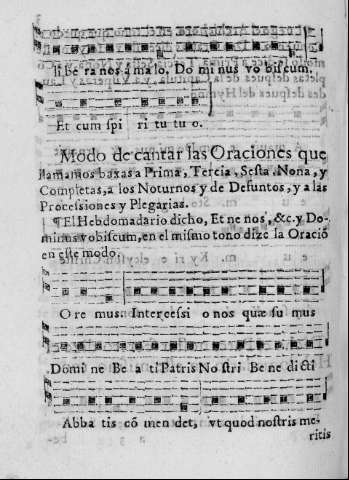 li be ra nos a malo. Do mi nus vo biscum.
Et cum spi ri tu tu o.
Modo de cantar las Oraciones que
llamamos baxas a Prima, Tercia, Sesta, Nona, y
Completas, a los Noturnos y de Defuntos, y a las
Processiones y Plegarias.
¶ El Hebdomadario dicho, Et ne nos, &c. y Do-
minus vobiscum, en el mismo tono dize la Oraciõ
en este modo.
O re mus. Intercessi o nos quæ su mus
Domi ne Be a ti Patris No stri Be ne di cti
Abba tis cõ men det, vt quod nostris me-
ritis